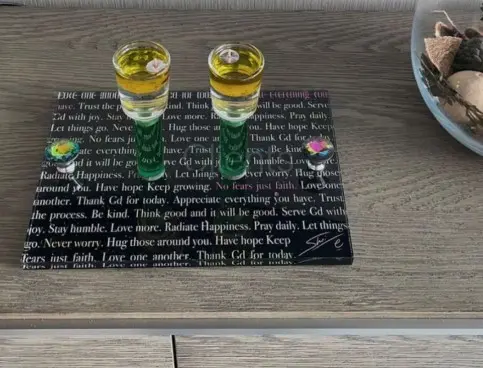 Love one another.
have. Trust the process. Be kind. Think good and it will be good. Serve
Gd with joy. Stay humble. Love more. Radiate Happiness. Pray daily.
Let things go. Never worry. Hug those around you. Have hope Keep
growing. No fears just faith. Love one another. Thank Gd for today.
Appreciate everything you have. Trust the process. Be kind.
good. Serve Gd with joy. Stay humble. Love more.
Radiate Happiness. Pray daily. Let things go. Never worry. Hug those
around you. Have hope Keep growing. No fears just faith. Love one
another. Thank Gd for today. Appreciate everything you have. Trust
the process. Be kind. Think good and it will be good. Serve Gd with
joy. Stay humble. Love more. Radiate Happiness. Pray daily. Let things
go. Never worry. Hug those around you. Have hope Keep
fears just faith. Love one another. Thank Gd for today.
fears just faith. Love one another. Thank Gd for today.